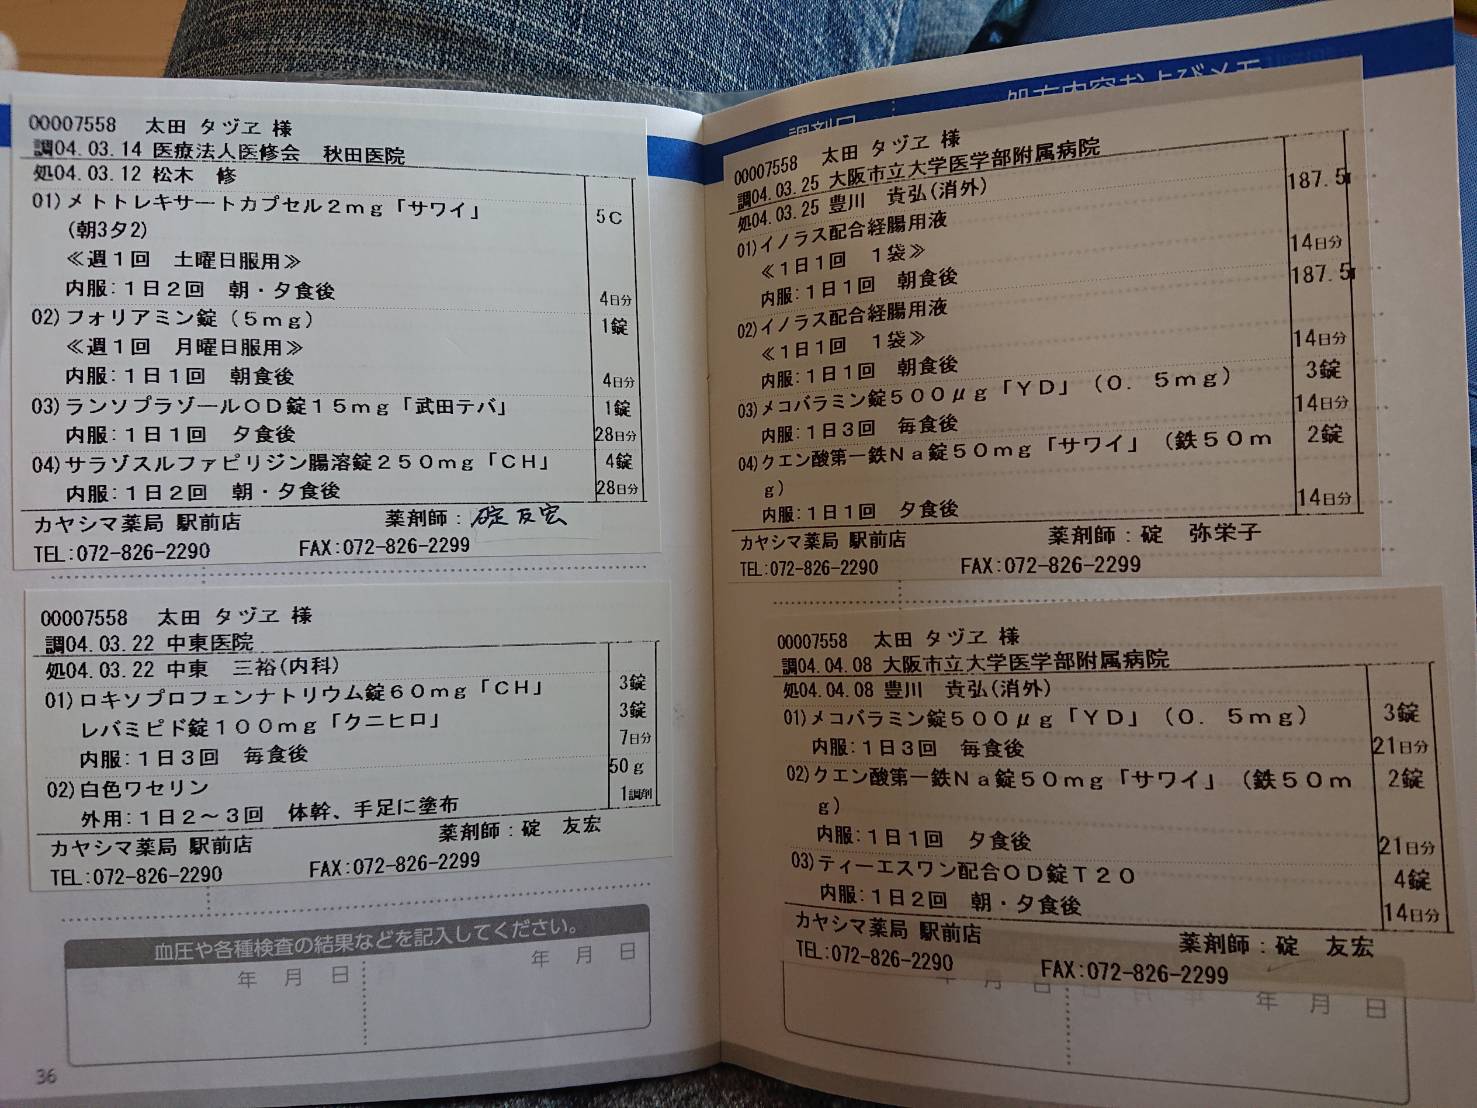 00007558 太田 タヅヱ 様
調04.03.14 医療法人医修会 秋田医院
処04.03.12 松木 修
01)メトトレキサートカプセル2mg「サワイ」 5C
(朝3夕2)
≪週1回 土曜日服用≫
内服:1日2回 朝・夕食後 4日分
02)フォリアミン錠(5mg) 1錠
≪週1回 月曜日服用≫
内服:1日1回 朝食後 4日分
03)ランソプラゾールOD錠15mg「武田テバ」 1錠
内服:1日1回 夕食後 28日分
04)サラゾスルファピリジン腸溶錠250mg「CH」 4錠
内服:1日2回 朝・夕食後 28日分
カヤシマ薬局 駅前店 薬剤師:碇友宏
TEL:072-826-2290 FAX:072-826-2299
00007558 太田 タヅヱ 様
調04.03.22 中東医院
処04.03.22 中東 三裕(内科)
01)ロキソプロフェンナトリウム錠60mg「CH」 3錠
レバミピド錠100mg「クニヒロ」 3錠
内服:1日3回 毎食後 7日分
02)白色ワセリン 50g
外用:1日2~3回 体幹、手足に塗布 1調剤
カヤシマ薬局 駅前店 薬剤師:碇 友宏
TEL:072-826-2290 FAX:072-826-2299
血圧や各種検査の結果などを記入してください。
年 月 日 年 月 日
36
調剤日 処方内容およびメモ
00007558 太田 タヅヱ 様
調04.03.25 大阪市立大学医学部附属病院
処04.03.25 豊川 貴弘(消外)
01)イノラス配合経腸用液 187.5
≪1日1回 1袋≫
内服:1日1回 朝食後 14日分
02)イノラス配合経腸用液 187.5
≪1日1回 1袋≫
内服:1日1回 朝食後 14日分
03)メコバラミン錠500μg「YD」(0.5mg) 3錠
内服:1日3回 毎食後 14日分
04)クエン酸第一鉄Na錠50mg「サワイ」(鉄50m 2錠
g)
内服:1日1回 夕食後 14日分
カヤシマ薬局 駅前店 薬剤師:碇 弥栄子
TEL:072-826-2290 FAX:072-826-2299
00007558 太田 タヅヱ 様
調04.04.08 大阪市立大学医学部附属病院
処04.04.08 豊川 貴弘(消外)
01)メコバラミン錠500μg「YD」(0.5mg) 3錠
内服:1日3回 毎食後 21日分
02)クエン酸第一鉄Na錠50mg「サワイ」(鉄50m 2錠
g)
内服:1日1回 夕食後 21日分
03)ティーエスワン配合OD錠T20 4錠
内服:1日2回 朝・夕食後 14日分
カヤシマ薬局 駅前店 薬剤師:碇 友宏
TEL:072-826-2290 FAX:072-826-2299
年 月 日 年 月 日